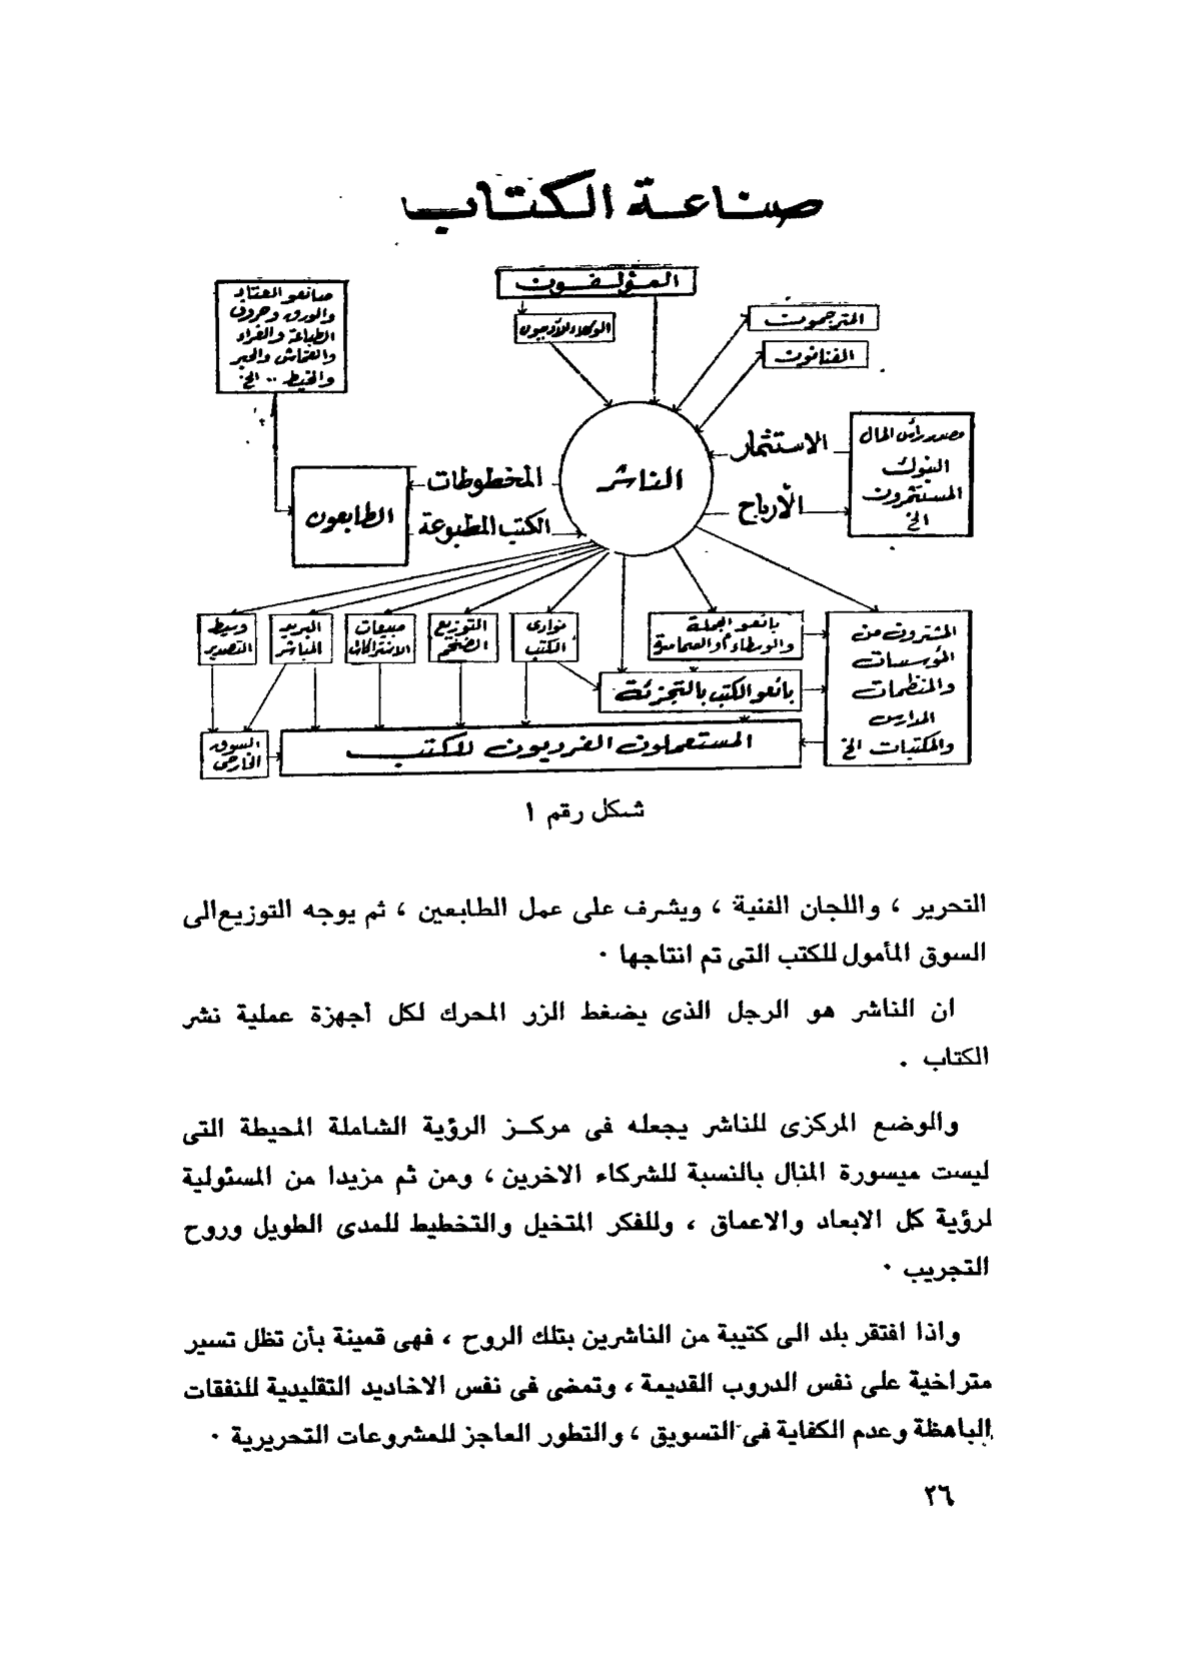 صناعة الكتاب
المؤلفون
الوكلاء الأدبيون
المترجمون
الفنانون
صانعو العتاد
والورق وحروف
الطباعة والغراء
والقماش والحبر
والخيط .. الخ
مصدر رأس المال
البنوك
المستثمرون
الخ
الاستثمار
الأرباح
الناشر
المخطوطات
الكتب المطبوعة
الطابعون
المشترون من
المؤسسات
والمنظمات
المدارس
والمكتبات الخ
بائعو الجملة
والوسطاء أو
نوادى
الكتب
التوزيع
الضخم
مبيعات
الاشتراكات
البريد
المباشر
وسيط
التصدير
بائعو الكتب بالتجزئة
المستعملون الفرديون للكتب
السوق
الخارجى
شكل رقم ١
التحرير ، واللجان الفنية ، ويشرف على عمل الطابعين ، ثم يوجه التوزيع الى
السوق المأمول للكتب التى تم انتاجها ٠
ان الناشر هو الرجل الذى يضغط الزر المحرك لكل أجهزة عملية نشر
الكتاب ٠
والوضع المركزى للناشر يجعله فى مركــز الرؤية الشاملة المحيطة التى
ليست ميسورة المنال بالنسبة للشركاء الاخرين ، ومن ثم مزيدا من المسئولية
لرؤية كل الابعاد والاعماق ، وللفكر المتخيل والتخطيط للمدى الطويل وروح
التجريب ٠
واذا افتقر بلد الى كتيبة من الناشرين بتلك الروح ، فهى قمينة بأن تظل تسير
متراخية على نفس الدروب القديمة ، وتمضى فى نفس الاخاديد التقليدية للنفقات
الباهظة وعدم الكفاية فى التسويق ، والتطور العاجز للمشروعات التحريرية ٠
٢٦